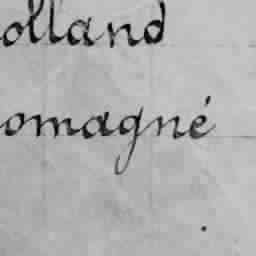 olland
omagné
.